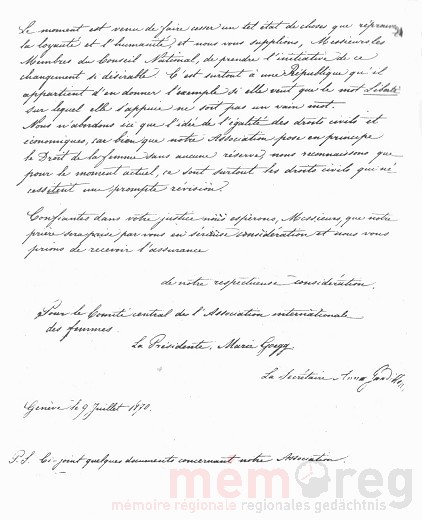 Le moment est venu de faire cesser un tel état de chose que réprouve
la loyauté et l'humanité et nous vous supplions, Messieurs les
Membres du Conseil National, de prendre l'initiative de ce
changement si désirable. C'est surtout à une République qu'il
appartient d'en donner l'exemple si elle veut que le mot Liberté
sur lequel elle s'appuie ne soit pas un vain mot.
Nous n'abordons ici que l'idée de l'égalité des droits civils et
économiques, car bien que notre Association pose en principe
le Droit de la femme sans aucune réserve, nous reconnaissons que
pour le moment actuel, ce sont surtout les droits civils qui né-
cessitent une prompte révision.
Confiantes dans votre justice nous espérons, Messieurs, que notre
prière sera prise par vous en sérieuse considération et nous vous
prions de recevoir l'assurance
de notre respectueuse considération.
Pour le Comité central de l'Association internationale
des femmes.
La Présidente, Marie Goegg
La Secrétaire Anna
Genève le 9 Juillet 1870.
P.S. Ci-joint quelques documents concernant notre Association.
memoreg
mémoire régionale regionales gedächtnis